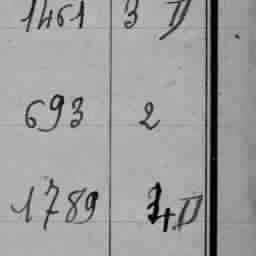 1461 3 II
693 2
1789 4 II